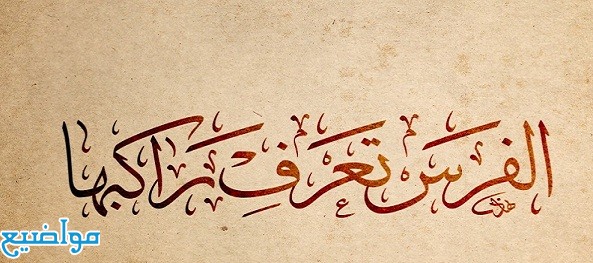 الفَرسَ تَعرَفِ رَاكبها
مواضيع